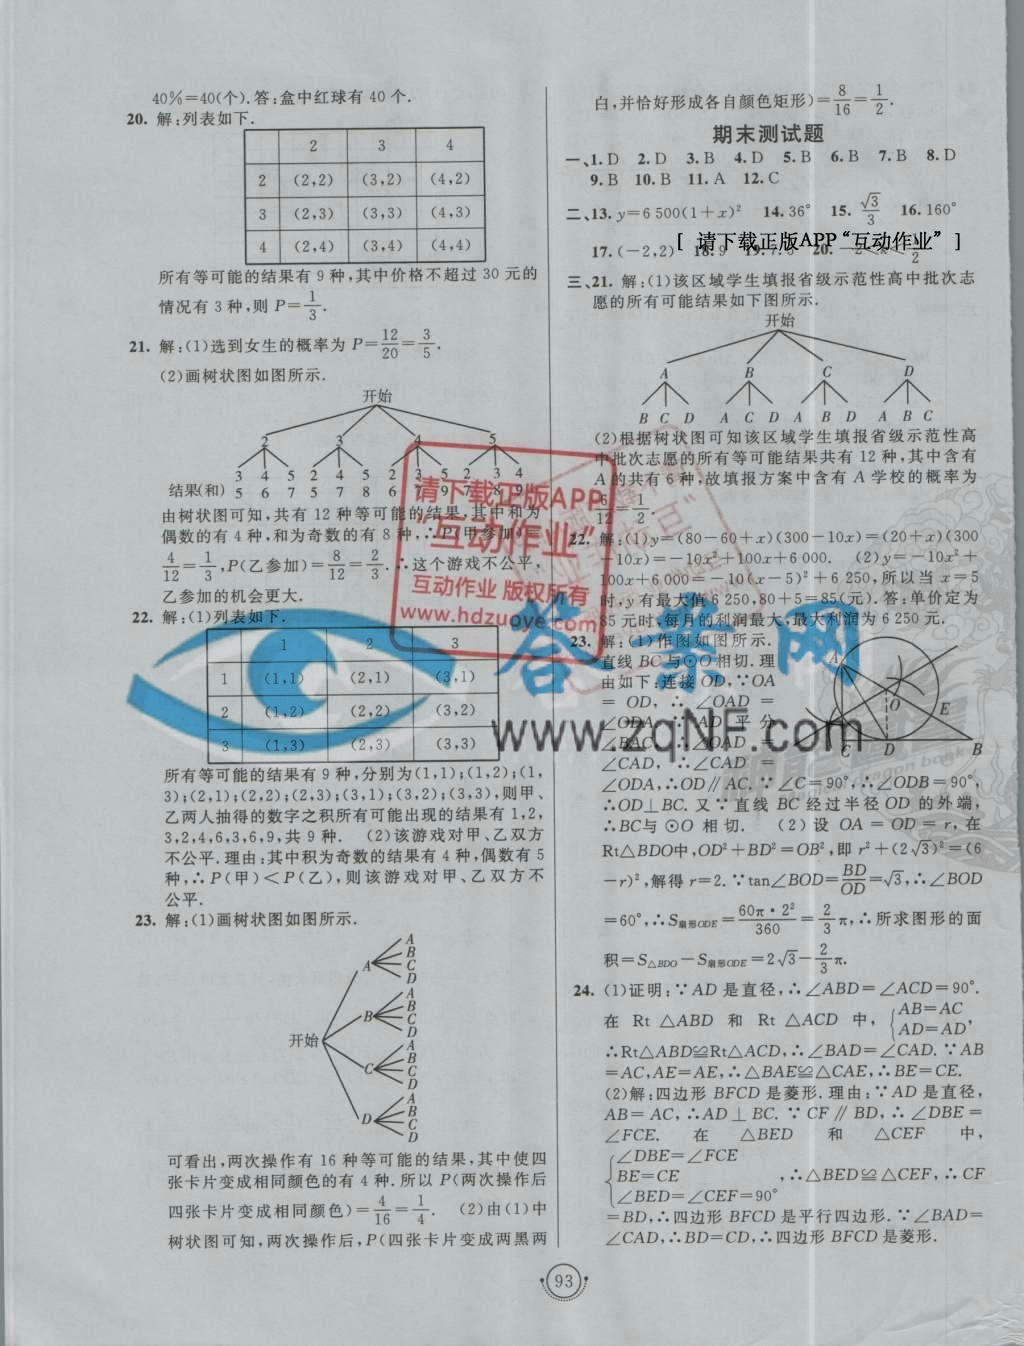 40%=40(个).答:盒中红球有 40 个.
20. 解:列表如下.
2 3 4
2 (2,2) (3,2) (4,2)
3 (2,3) (3,3) (4,3)
4 (2,4) (3,4) (4,4)
所有等可能的结果有 9 种,其中价格不超过 30 元的
情况有 3 种,则 P=1/3.
21. 解:(1)选到女生的概率为 P=12/20=3/5.
(2)画树状图如图所示.
开始
2 3 4 5
3 4 5 2 4 5 2 3 5 2 3 4
结果(和) 5 6 7 5 7 8 6 7 9 7 8 9
由树状图可知,共有 12 种等可能的结果,其中和为
偶数的有 4 种,和为奇数的有 8 种,∴P(甲参加)=
4/12=1/3,P(乙参加)=8/12=2/3.∴这个游戏不公平,
乙参加的机会更大.
22. 解:(1)列表如下.
1 2 3
1 (1,1) (2,1) (3,1)
2 (1,2) (2,2) (3,2)
3 (1,3) (2,3) (3,3)
所有等可能的结果有 9 种,分别为(1,1);(1,2);(1,
3);(2,1);(2,2);(2,3);(3,1);(3,2);(3,3),则甲、
乙两人抽得的数字之积所有可能出现的结果有 1,2,
3,2,4,6,3,6,9,共 9 种. (2)该游戏对甲、乙双方
不公平.理由:其中积为奇数的结果有 4 种,偶数有 5
种,∴P(甲)<P(乙),则该游戏对甲、乙双方不
公平.
23. 解:(1)画树状图如图所示.
开始
A A B C D
B A B C D
C A B C D
D A B C D
可看出,两次操作有 16 种等可能的结果,其中使四
张卡片变成相同颜色的有 4 种.所以 P(两次操作后
四张卡片变成相同颜色)=4/16=1/4. (2)由(1)中
树状图可知,两次操作后,P(四张卡片变成两黑两
白,并恰好形成各自颜色矩形)=8/16=1/2.
期末测试题
一、1. D 2. D 3. B 4. D 5. B 6. B 7. B 8. D
9. B 10. B 11. A 12. C
二、13. y=6 500(1+x)² 14. 36° 15. √3/3 16. 160°
[ 请下载正版APP“互动作业” ]
17. (-2,2) 18. 9 19. 20.
三、21. 解:(1)该区域学生填报省级示范性高中批次志
愿的所有可能结果如下图所示.
开始
A B C D
B C D A C D A B D A B C
(2)根据树状图可知该区域学生填报省级示范性高
中批次志愿的所有等可能结果共有 12 种,其中含有
A 的共有 6 种,故填报方案中含有 A 学校的概率为
6/12=1/2.
22. 解:(1)y=(80-60+x)(300-10x)=(20+x)(300
-10x)=-10x²+100x+6000. (2)y=-10x²+
100x+6 000=-10(x-5)²+6 250,所以当 x=5
时,y 有最大值 6 250,80+5=85(元).答:单价定为
85 元时,每月的利润最大,最大利润为 6 250 元.
23. 解:(1)作图如图所示.
直线 BC 与⊙O 相切.理
由如下:连接 OD,∵OA
=OD,∴∠OAD=
∠ODA.∵AD 平分
∠BAC,∴∠OAD=
∠CAD,∴∠CAD=
A O E C D B
∠ODA,∴OD∥AC.∵∠C=90°,∴∠ODB=90°,
∴OD⊥BC.又∵直线 BC 经过半径 OD 的外端,
∴BC与⊙O 相切. (2)设 OA=OD=r,在
Rt△BDO中,OD²+BD²=OB²,即 r²+(2√3)²=(6
-r)²,解得 r=2.∵tan∠BOD=BD/OD=√3,∴∠BOD
=60°,∴S扇形ODE=60π·2²/360=2/3π,∴所求图形的面
积=S△BDO-S扇形ODE=2√3-2/3π.
24. (1)证明:∵AD 是直径,∴∠ABD=∠ACD=90°.
在 Rt△ABD 和 Rt△ACD 中,{AB=AC
AD=AD,
∴Rt△ABD≌Rt△ACD,∴∠BAD=∠CAD.∵AB
=AC,AE=AE,∴△BAE≌△CAE,∴BE=CE.
(2)解:四边形 BFCD 是菱形.理由:∵AD 是直径,
AB=AC,∴AD⊥BC.∵CF∥BD,∴∠DBE=
∠FCE. 在 △BED 和 △CEF 中,
{∠DBE=∠FCE
BE=CE ,∴△BED≌△CEF,∴CF
∠BED=∠CEF=90°
=BD,∴四边形 BFCD 是平行四边形.∵∠BAD=
∠CAD,∴BD=CD,∴四边形 BFCD 是菱形.
93
请下载正版APP
“互动作业”
互动作业 版权所有
www.hdzuoye.com
答案网
www.zqnf.com